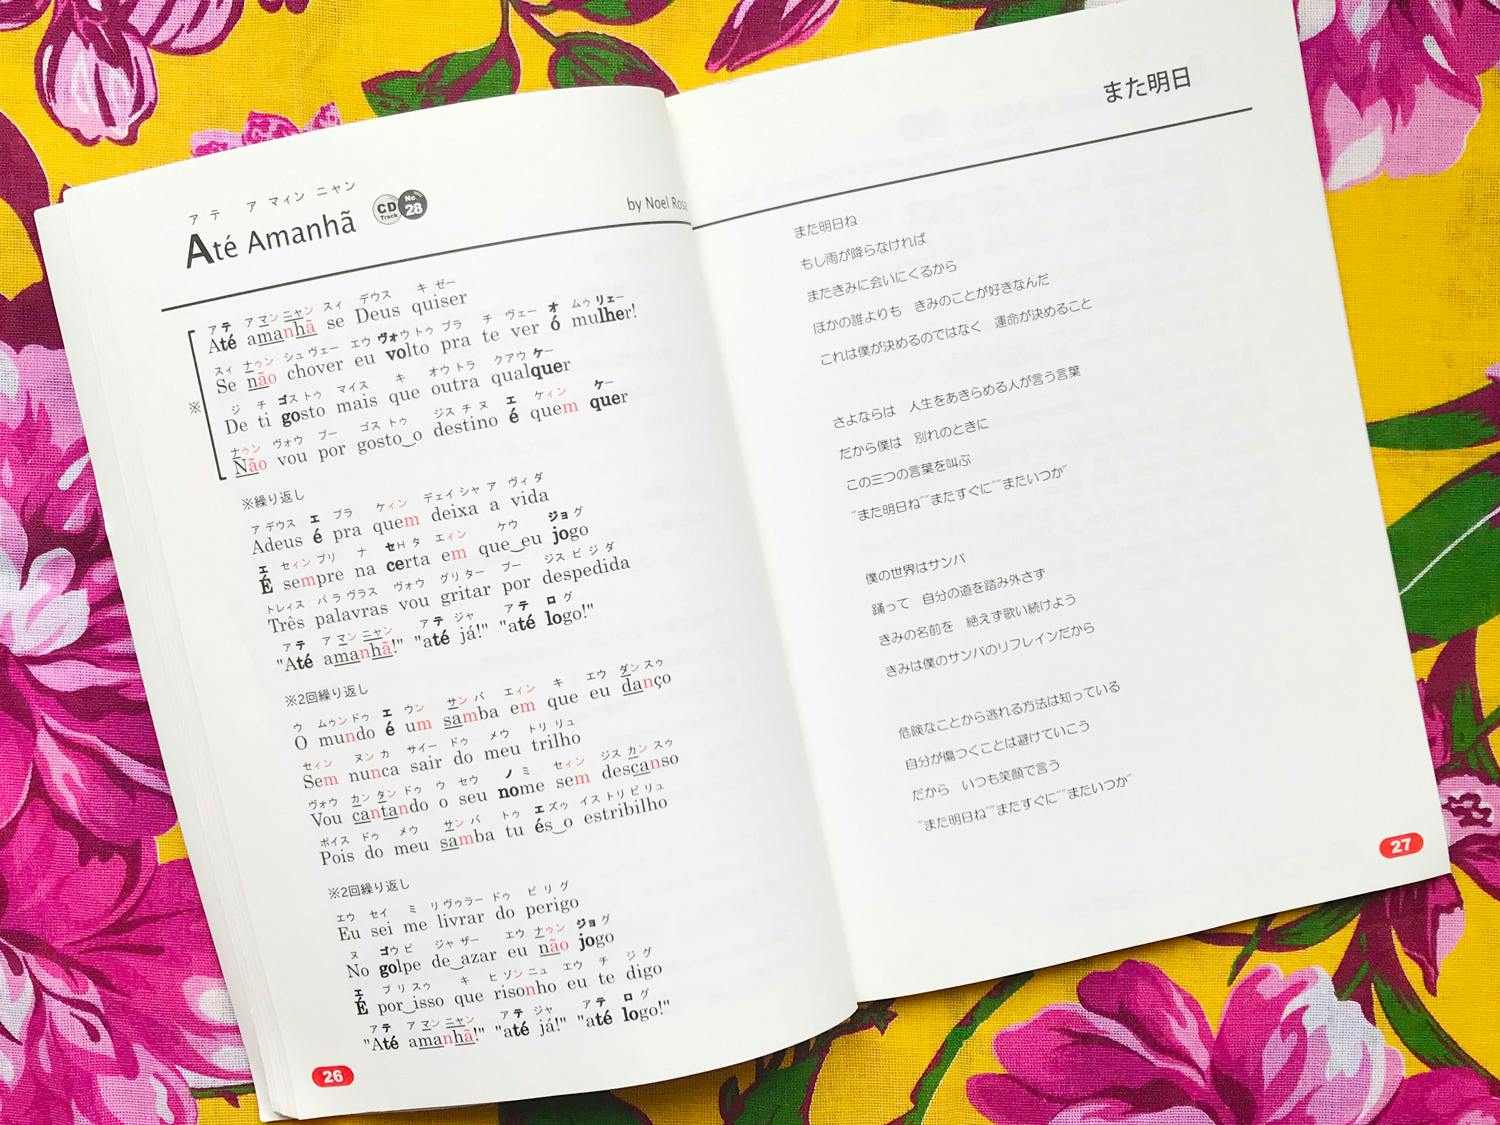 アテ ア マィン ニャン
Até Amanhã
CD Track No 28
by Noel Rosa
アテ ア マン ニャン スィ デウス キ ゼー
Até amanhã se Deus quiser
スィ ナゥン シュ ヴェー エウ ヴォウ トゥ プラ チ ヴェー オ ムゥ リェー
Se não chover eu volto pra te ver ó mulher!
ジ チ ゴス トゥ マイス キ オウ トラ クアウ ケー
De ti gosto mais que outra qualquer
ナゥン ヴォウ プー ゴス トゥ ジス チ ヌ エ ケィン ケー
Não vou por gosto o destino é quem quer
※
※繰り返し
ア デウス エ プラ ケィン デェイ シャ ア ヴィ ダ
Adeus é pra quem deixa a vida
エ セィン プリ ナ セH タ エィン ケウ ジョ グ
É sempre na certa em que eu jogo
トレィス パ ラ ヴラス ヴォウ グリ ター プー ジス ピ ジ ダ
Três palavras vou gritar por despedida
アテ ア マン ニャン アテ ジャ アテ ログ
"Até amanhã!" "até já!" "até logo!"
※2回繰り返し
ウ ムゥン ドゥ エ ウン サン バ エィン キ エウ ダン スゥ
O mundo é um samba em que eu danço
セィン ヌン カ サイー ドゥ メウ トリ リュ
Sem nunca sair do meu trilho
ヴォウ カン タン ドゥ ウ セウ ノ ミ セィン ジス カン スゥ
Vou cantando o seu nome sem descanso
ポイス ドゥ メウ サン バ トゥ エ ズゥ イス トリ ビ リュ
Pois do meu samba tu és o estribilho
※2回繰り返し
エウ セイ ミ リ ヴゥラー ドゥ ピ リ グ
Eu sei me livrar do perigo
ヌ ゴウ ピ ジャ ザー エウ ナゥン ジョ グ
No golpe de azar eu não jogo
エ プ リ スゥ キ ヒ ゾン ニュ エウ チ ジ グ
É por isso que risonho eu te digo
アテ ア マン ニャン アテ ジャ アテ ログ
"Até amanhã!" "até já!" "até logo!"
26
また明日
また明日ね
もし雨が降らなければ
またきみに会いにくるから
ほかの誰よりも きみのことが好きなんだ
これは僕が決めるのではなく 運命が決めること
さよならは 人生をあきらめる人が言う言葉
だから僕は 別れのときに
この三つの言葉を叫ぶ
"また明日ね""またすぐに""またいつか"
僕の世界はサンバ
踊って 自分の道を踏み外さず
きみの名前を 絶えず歌い続けよう
きみは僕のサンバのリフレインだから
危険なことから逃れる方法は知っている
自分が傷つくことは避けていこう
だから いつも笑顔で言う
"また明日ね""またすぐに""またいつか"
27